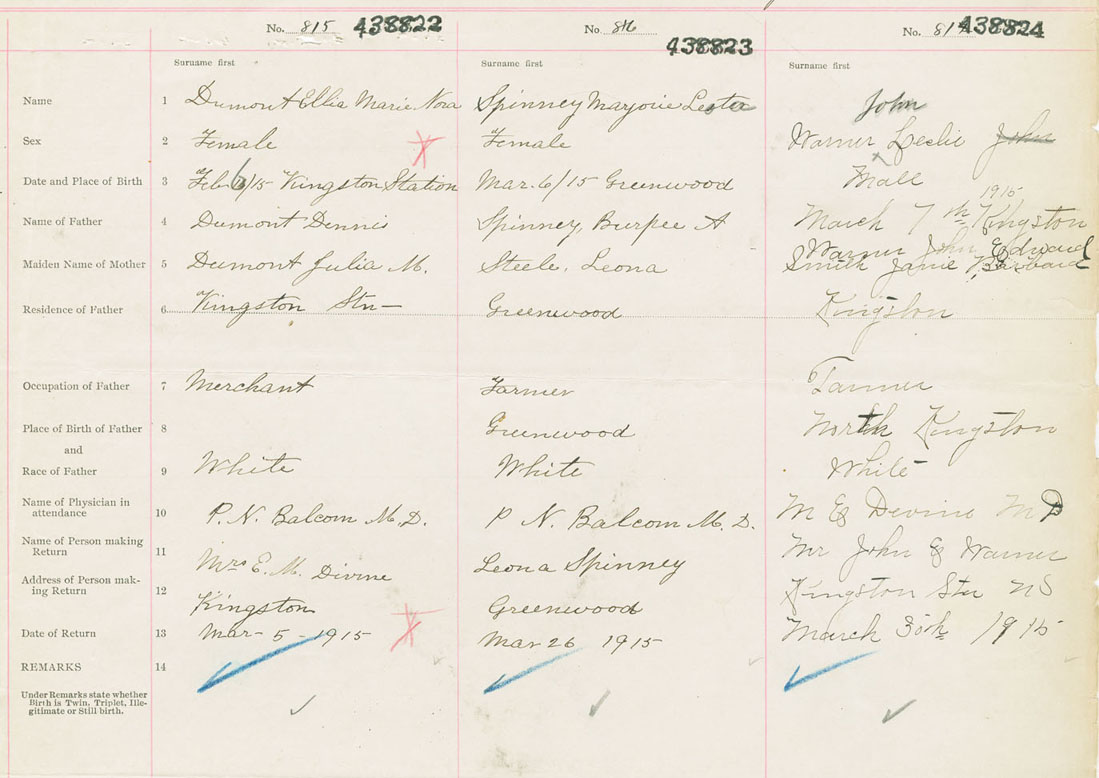 No. 815 438822 No 816 438823 No. 817 438824
Surname first Surname first Surname first
Name 1 Dumont Ellia Marie Nora Spinney Marjorie Lesta John
Sex 2 Female Female Warner Leslie John
Date and Place of Birth 3 Feb 6/15 Kingston Station Mar. 6/15 Greenwood Mall
1915
Name of Father 4 Dumont Dennis Spinney, Burpee A March 7th Kingston
Warner John Edward
Maiden Name of Mother 5 Dumont Julia M. Steele, Leona Smith Janie Barbara
Residence of Father 6 Kingston Stn— Greenwood Kingston
Occupation of Father 7 Merchant Farmer Farmer
Place of Birth of Father 8 Greenwood North Kingston
and
Race of Father 9 White White White
Name of Physician in
attendance 10 P. N. Balcom M. D. P N. Balcom M. D. M E Devine M D
Name of Person making
Return 11 Mrs E. M. Divine Leona Spinney Mr John E Warner
Address of Person mak-
ing Return 12 Kingston Greenwood Kingston Stn NS
Date of Return 13 Mar- 5 - 1915 Mar 26 1915 March 30th 1915
REMARKS 14
Under Remarks state whether
Birth is Twin, Triplet, Ille-
gitimate or Still birth.